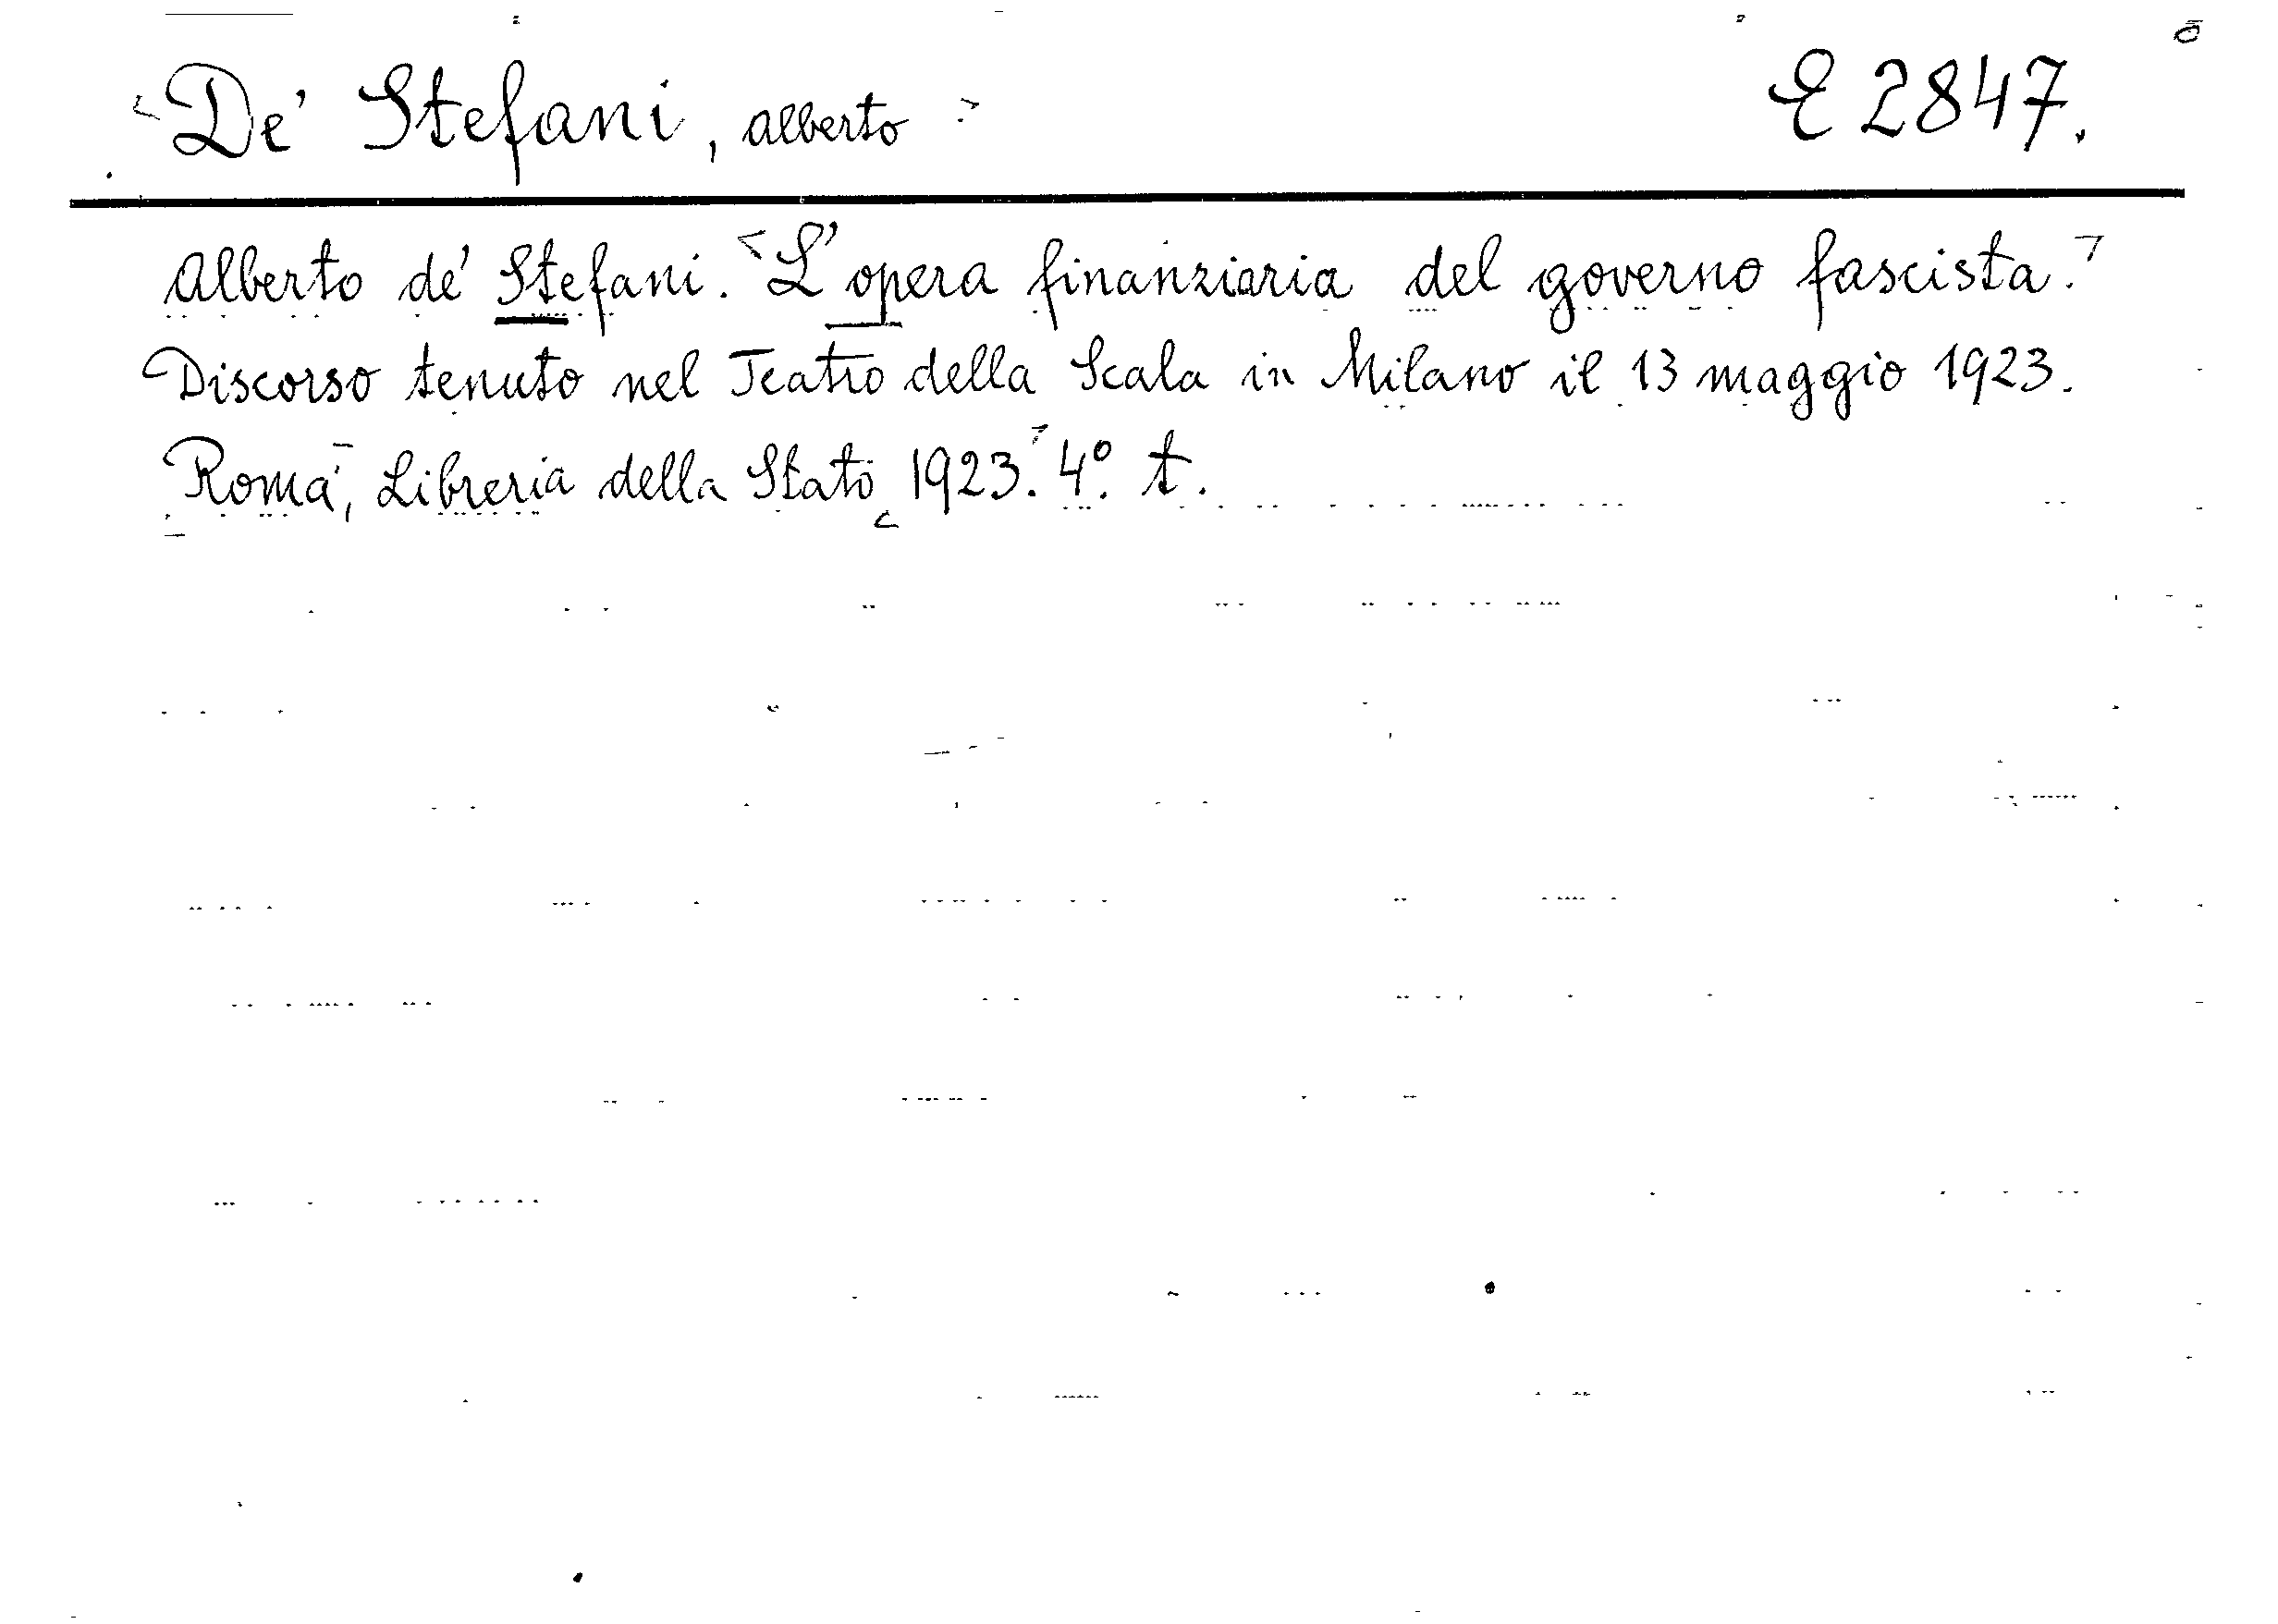 De' Stefani, Alberto E 2847.
Alberto de' Stefani. L'opera finanziaria del governo fascista.
Discorso tenuto nel Teatro della Scala in Milano il 13 maggio 1923.
Roma, Libreria della Stato 1923. 4º. t.